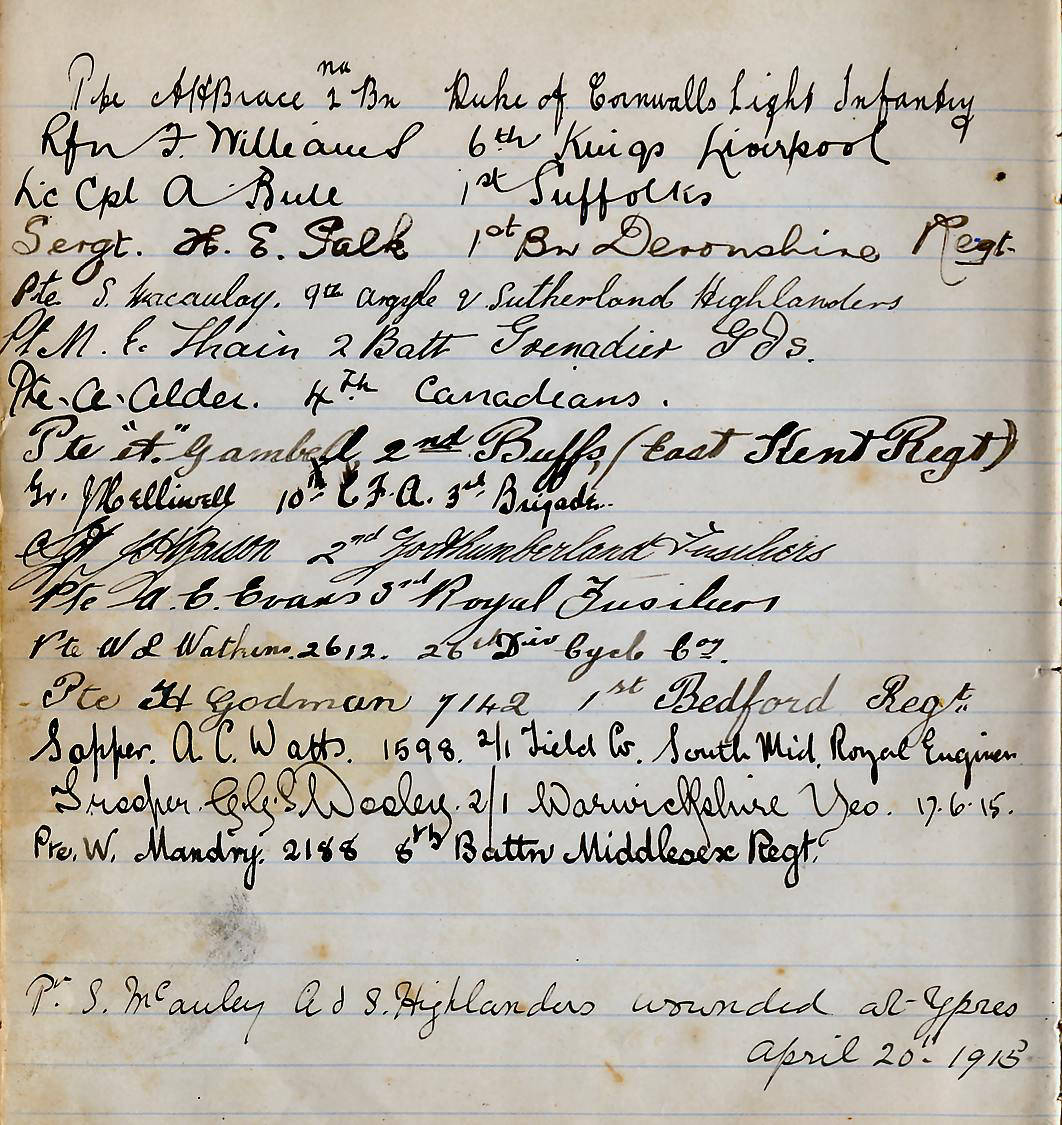 Pte A H Brace 2nd Bn Duke of Cornwalls Light Infantry
Rfn F. Williams 6th Kings Liverpool
L/c Cpl A Bull 1st Suffolks
Sergt. H. E. Salk 1st Bn Devonshire Regt.
Pte S. Macaulay. 9th Argyle & Sutherland Highlanders
Pt M. E. Thain 2 Batt Grenadier Gds.
Pte. A. Alder. 4th Canadians.
Pte "A." Gambell 2nd Buffs, (East Kent Regt)
Gr. J Helliwell 10th C.F.A. 3rd Brigade.
2nd Northumberland Fusiliers
Pte A. E. Evans 3rd Royal Fusiliers
Pte W L Watkins. 2612. 28th Div Cycle Coy.
Pte H Godman 7142 1st Bedford Regt.
Sapper. A. C. Watts. 1598. 2/1 Field Co. South Mid. Royal Engineer
Trooper. Wooley. 2/1 Warwickshire Yeo. 17.6.15.
Pte. W. Mandry. 2188 8th Battn Middlesex Regt.
Pte S. McAuley A & S. Highlanders wounded at Ypres
April 20th 1915